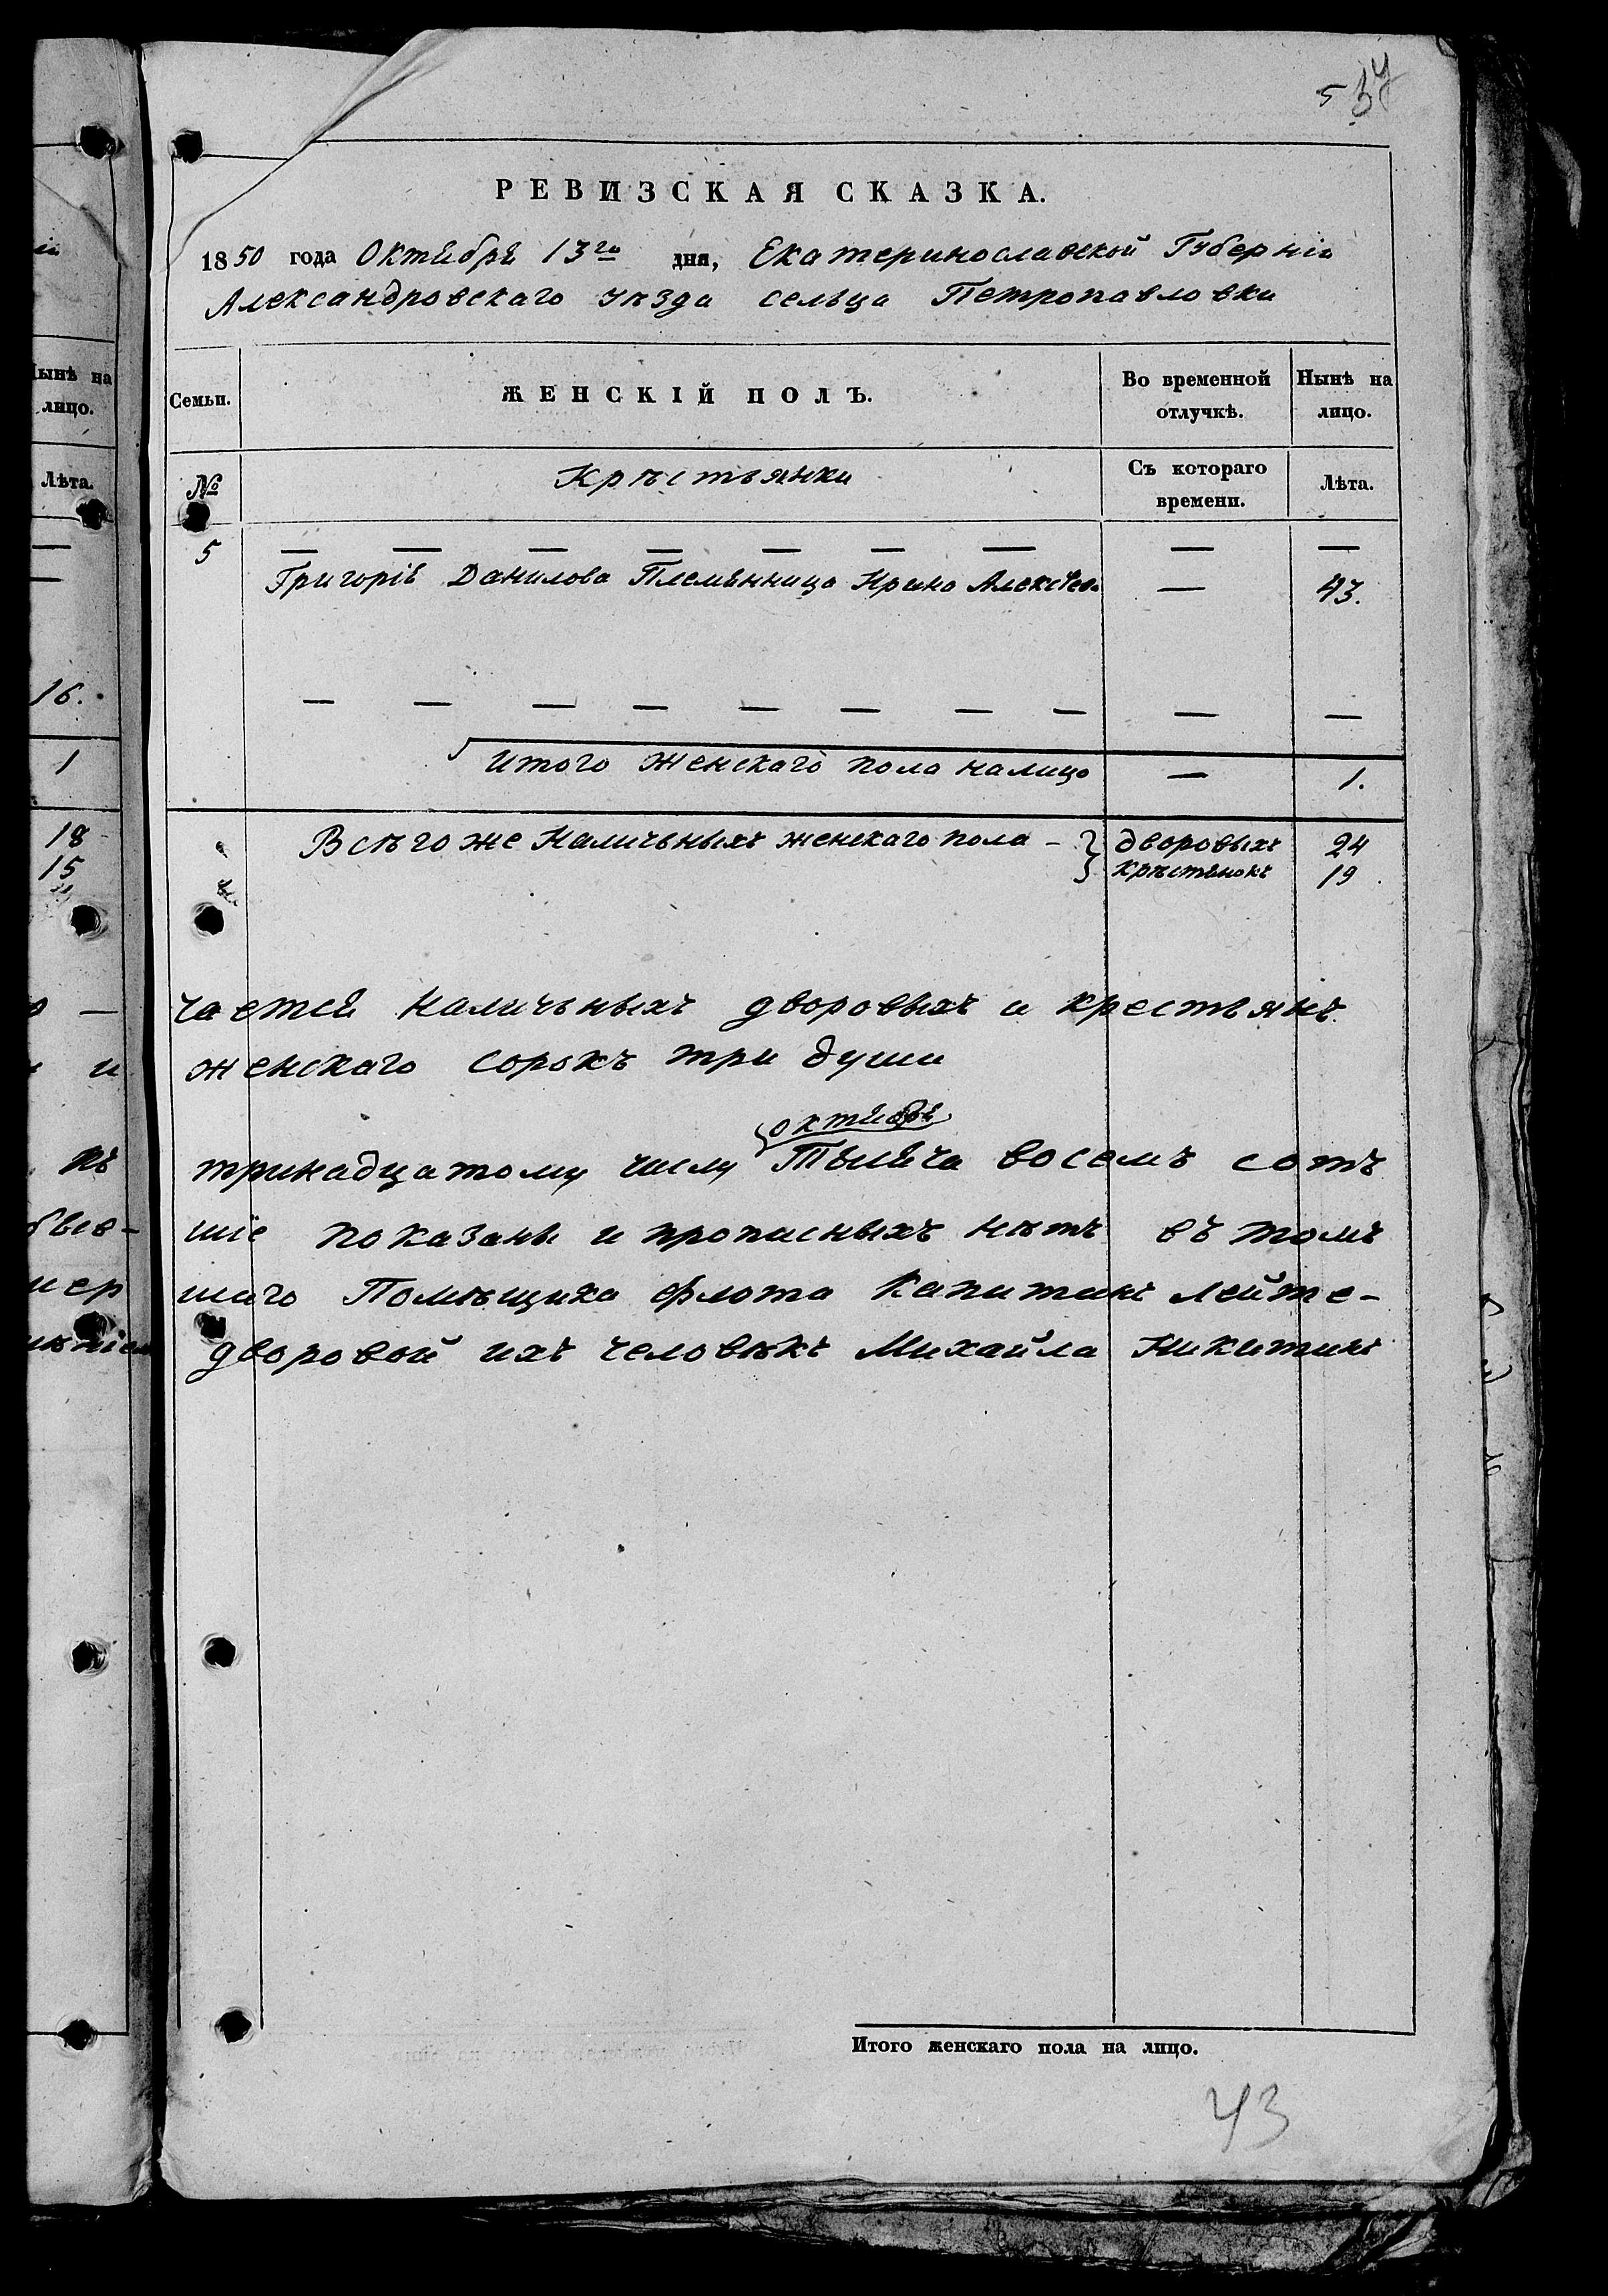 5 37
РЕВИЗСКАЯ СКАЗКА.
1850 года Октября 13го дня, Екатеринославской Губерніи
Александровскаго уѣзда сельца Петропавловки
Семьи.
ЖЕНСКІЙ ПОЛЪ.
Во временной отлучкѣ.
Нынѣ на лицо.
№
Крѣстьянки
Съ котораго времени.
Лѣта.
5 — — — — — — — — —
Григорія Данилова Племянница Ирина Алексѣева — 43.
— — — — — — — — — —
Итого женскаго пола налицо — 1.
Всѣго же Наличьныхъ женскаго пола – } дворовыхъ 24
крѣстянокъ 19
чается наличьныхъ дворовыхъ и крестьянъ
женскаго сорокъ три души
октября
тринадцатому числу Тысяча восемъ сотъ
шіе показаны и прописныхъ нѣтъ въ томъ
шаго Помѣщика флота Капитанъ лейте-
дворовой ихъ человѣкъ Михайла Никитинъ
Итого женскаго пола на лицо.
43
Нынѣ на
лицо.
Лѣта.
—
—
16.
1
18
15
—
и
къ
мер